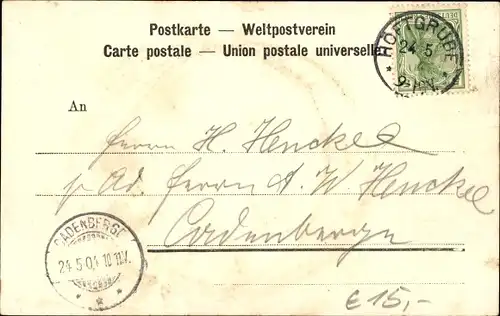 Postkarte — Weltpostverein
Carte postale — Union postale universelle
HÖFTGRUBE
24 5
An
Herrn H. Henckel
p. Ad. Herrn A. W. Henckel
Cadenberge
CADENBERGE
24.5.04 10-11V.
€ 15,-